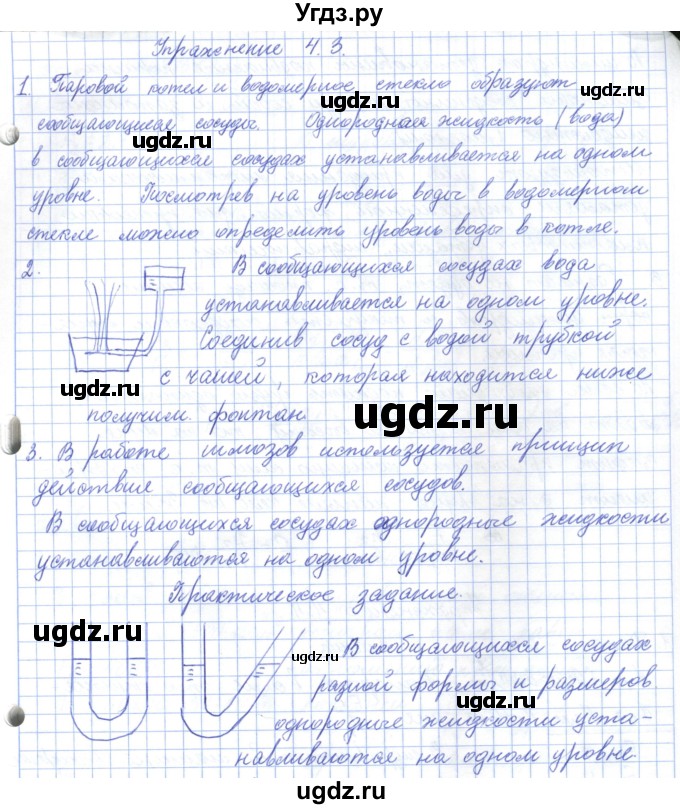 Угдз.ру
Упражнение 4.3.
1. Паровой котел и водомерное стекло образуют
ugdz.ru
сообщающиеся сосуды. Однородная жидкость (вода)
ugdz.ru
в сообщающихся сосудах устанавливается на одном
уровне. Посмотрев на уровень воды в водомерном
ugdz.ru
стекле можно определить уровень воды в котле.
2. В сообщающихся сосудах вода
устанавливается на одном уровне.
ugdz.ru
Соединив сосуд с водой трубкой
с чашей, которая находится ниже
ugdz.ru
получим фонтан.
ugdz.ru
3. В работе шлюзов используется принцип
действия сообщающихся сосудов.
ugdz.ru
В сообщающихся сосудах однородные жидкости
устанавливаются на одном уровне.
Практическое задание.
ugdz.ru
В сообщающихся сосудах
ugdz.ru
разной формы и размеров
ugdz.ru
однородные жидкости уста-
навливаются на одном уровне.
ugdz.ru